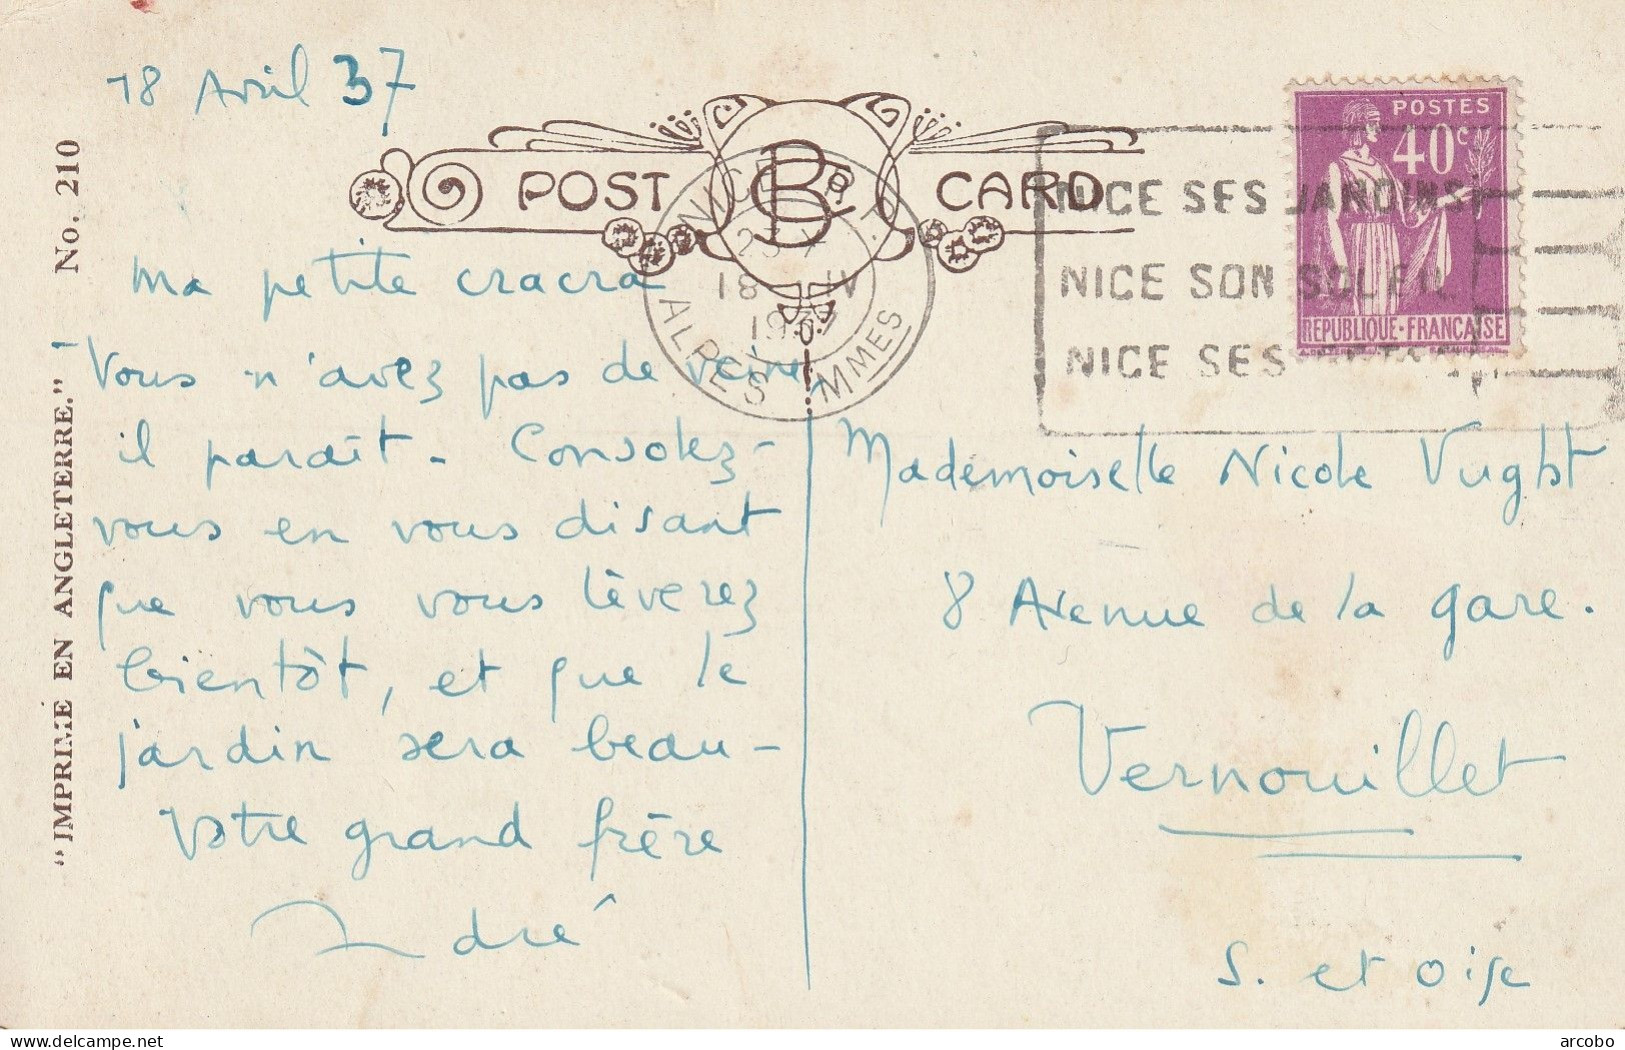 18 Avril 37
POST CARD
BC Co
"IMPRIMÉ EN ANGLETERRE." No. 210
NICE R.P.
18 IV
1937
ALPES MMES
NICE SES JARDINS
NICE SON SOLEIL
NICE SES
POSTES
40c
REPUBLIQUE·FRANÇAISE
Ma petite cracra
Vous n'avez pas de veine,
il paraît. Consolez-
vous en vous disant
que vous vous lèverez
bientôt, et que le
jardin sera beau -
Votre grand frère
André
Mademoiselle Nicole Vught
8 Avenue de la gare.
Vernouillet
S. et Oise
arcobo